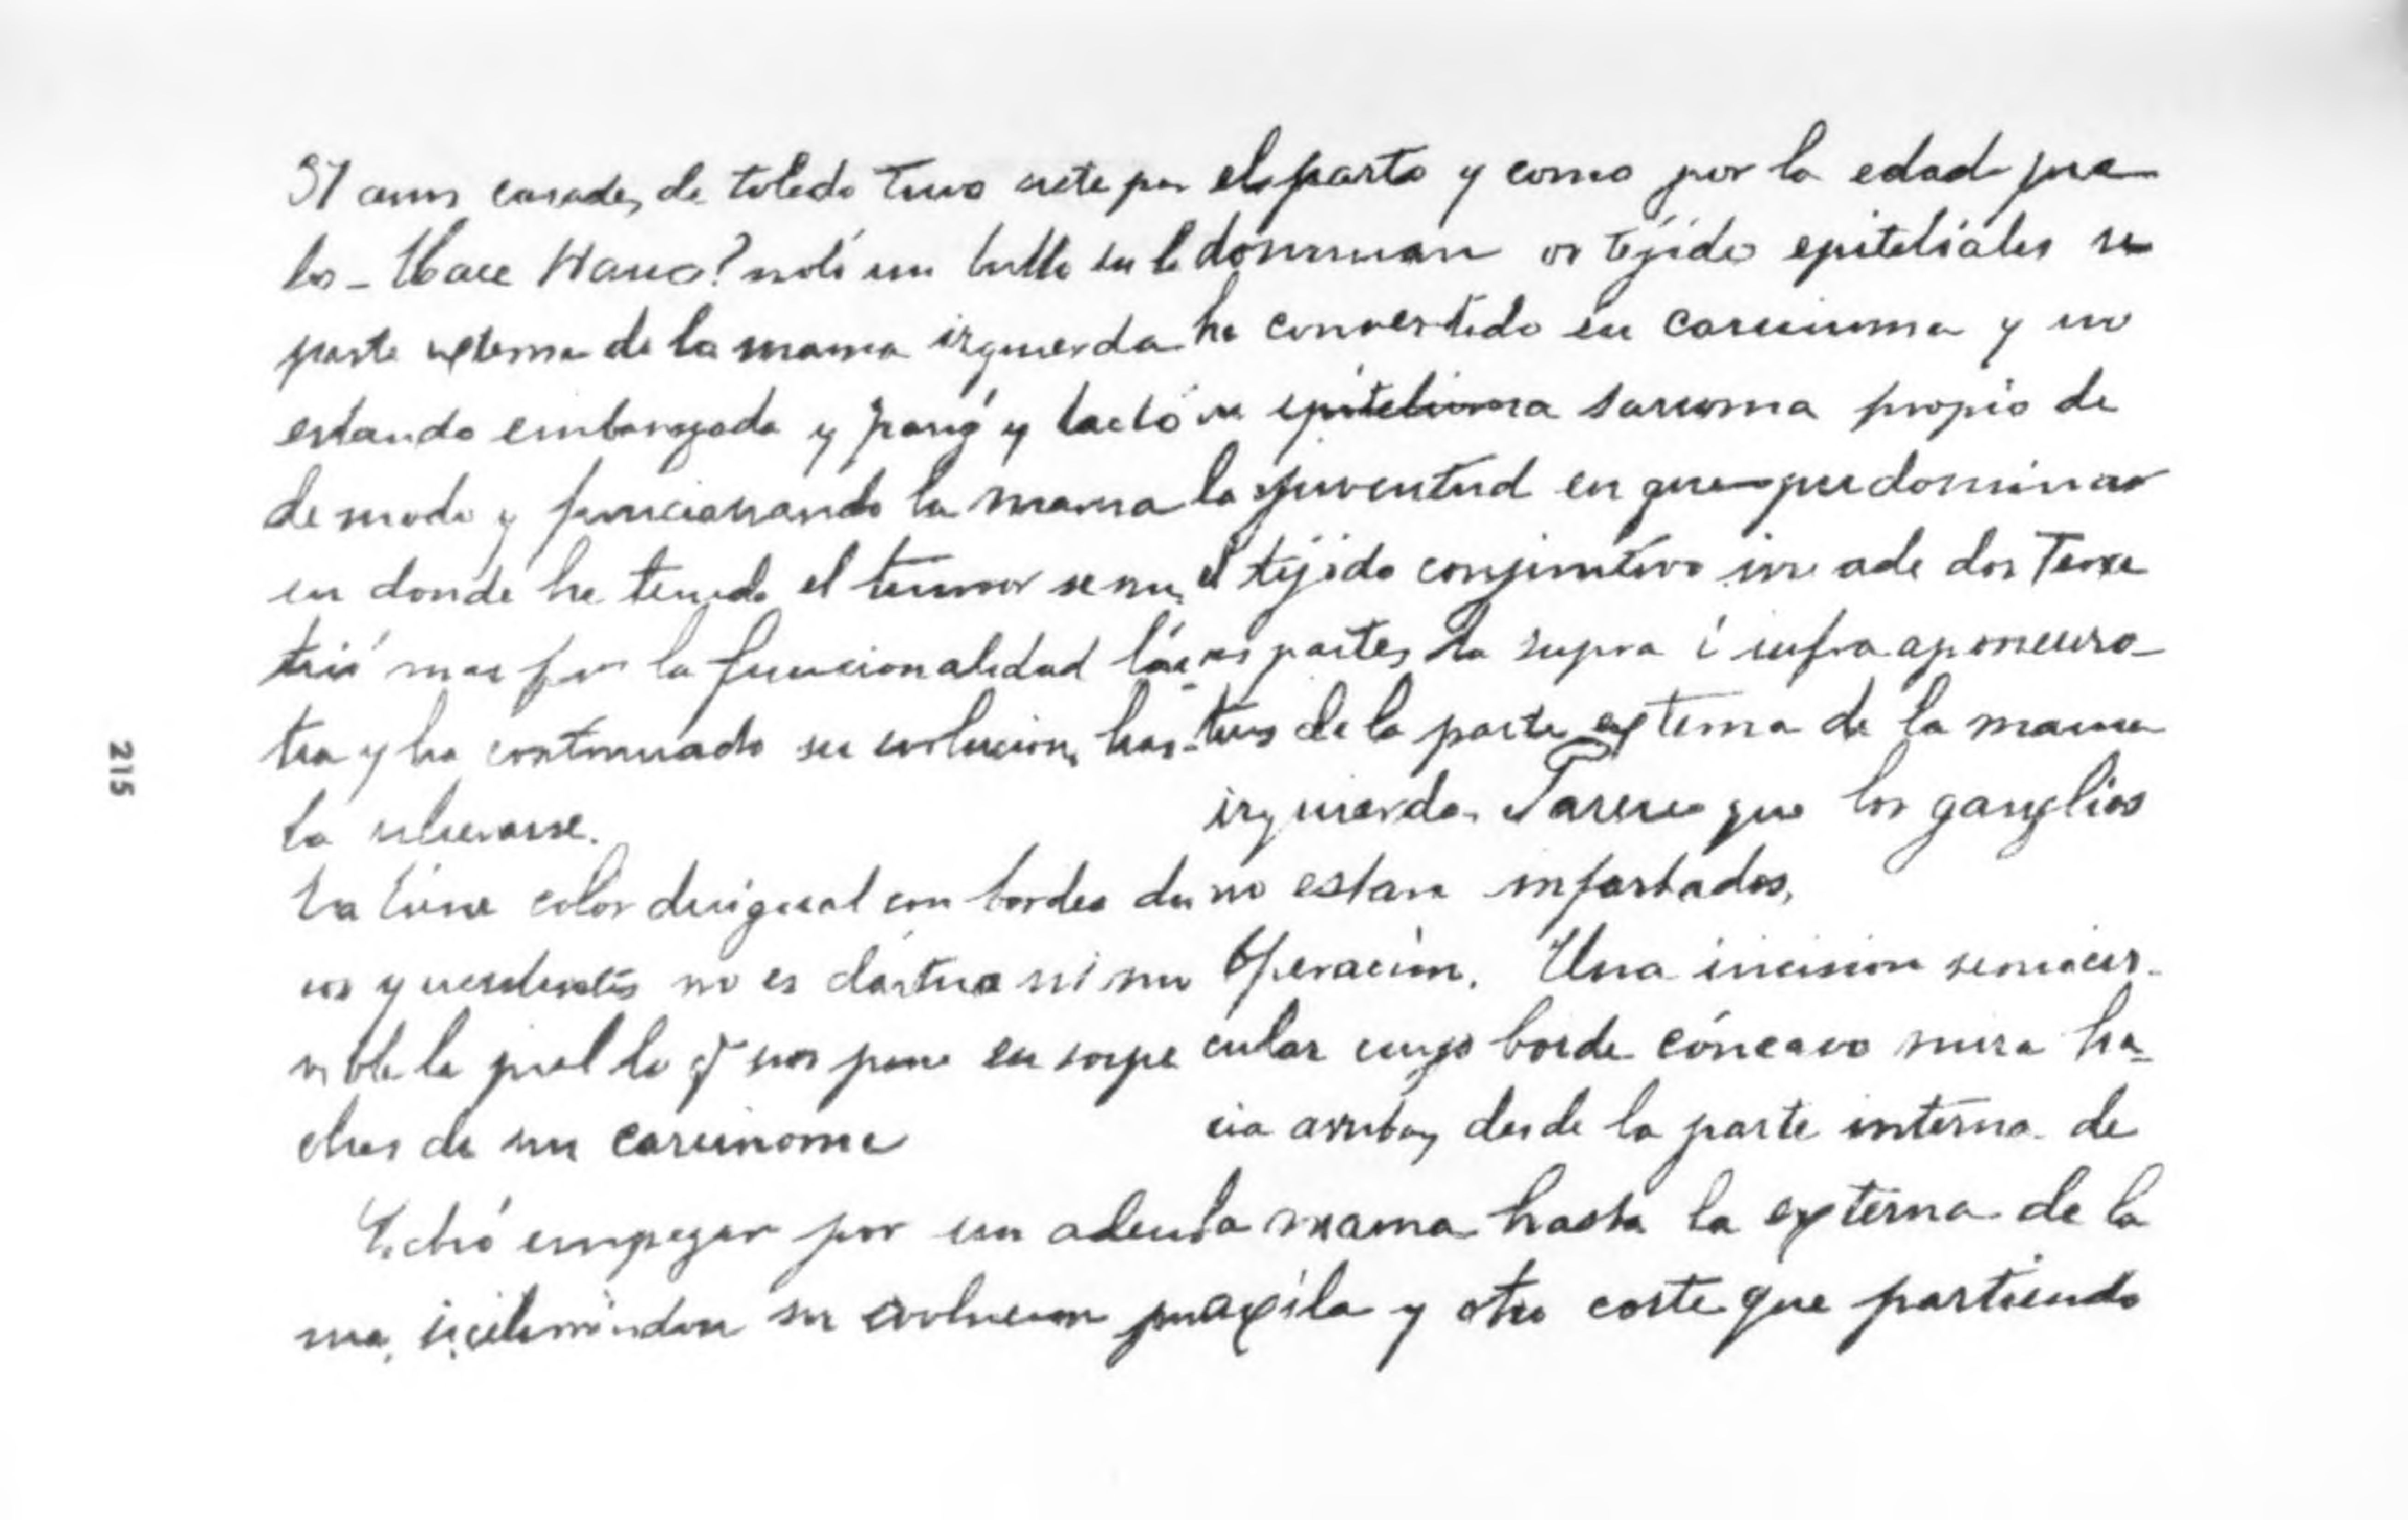 37 años casada, de toledo Tuvo siete par
tos - Hace 4 años? notó un bulto en la
parte externa de la mama izquierda
estando embarazada y parió y lactó
de modo q funcionando la mama
en donde ha tenido el tumor se nu
trió mas por la funcionalidad lác
tea y ha continuado su evolucion, has-
ta ulcerarse.
La tiene color desigual con bordes du
ros y no es ni mo
vible la piel lo q nos pone en sospe
chas de un carcinoma
Debió empezar por un adeno
ma, su evolucion
el parto y como por la edad pre
dominan os tejido epiteliales se
ha convertido en carcinoma y no
en epitelioma sarcoma propio de
la juventud en que predomina
el tejido conjuntivo invade dos terce
ras partes, la supra é infra aponeuro-
tica de la parte externa de la mama
izquierda. Parece que los ganglios
no estan infartados,
Operación. Una incision semicir-
cular cuyo borde cóncavo mira ha-
cia arriba, desde la parte interna de
la mama hasta la externa de la
axila y otro corte que partiendo
215